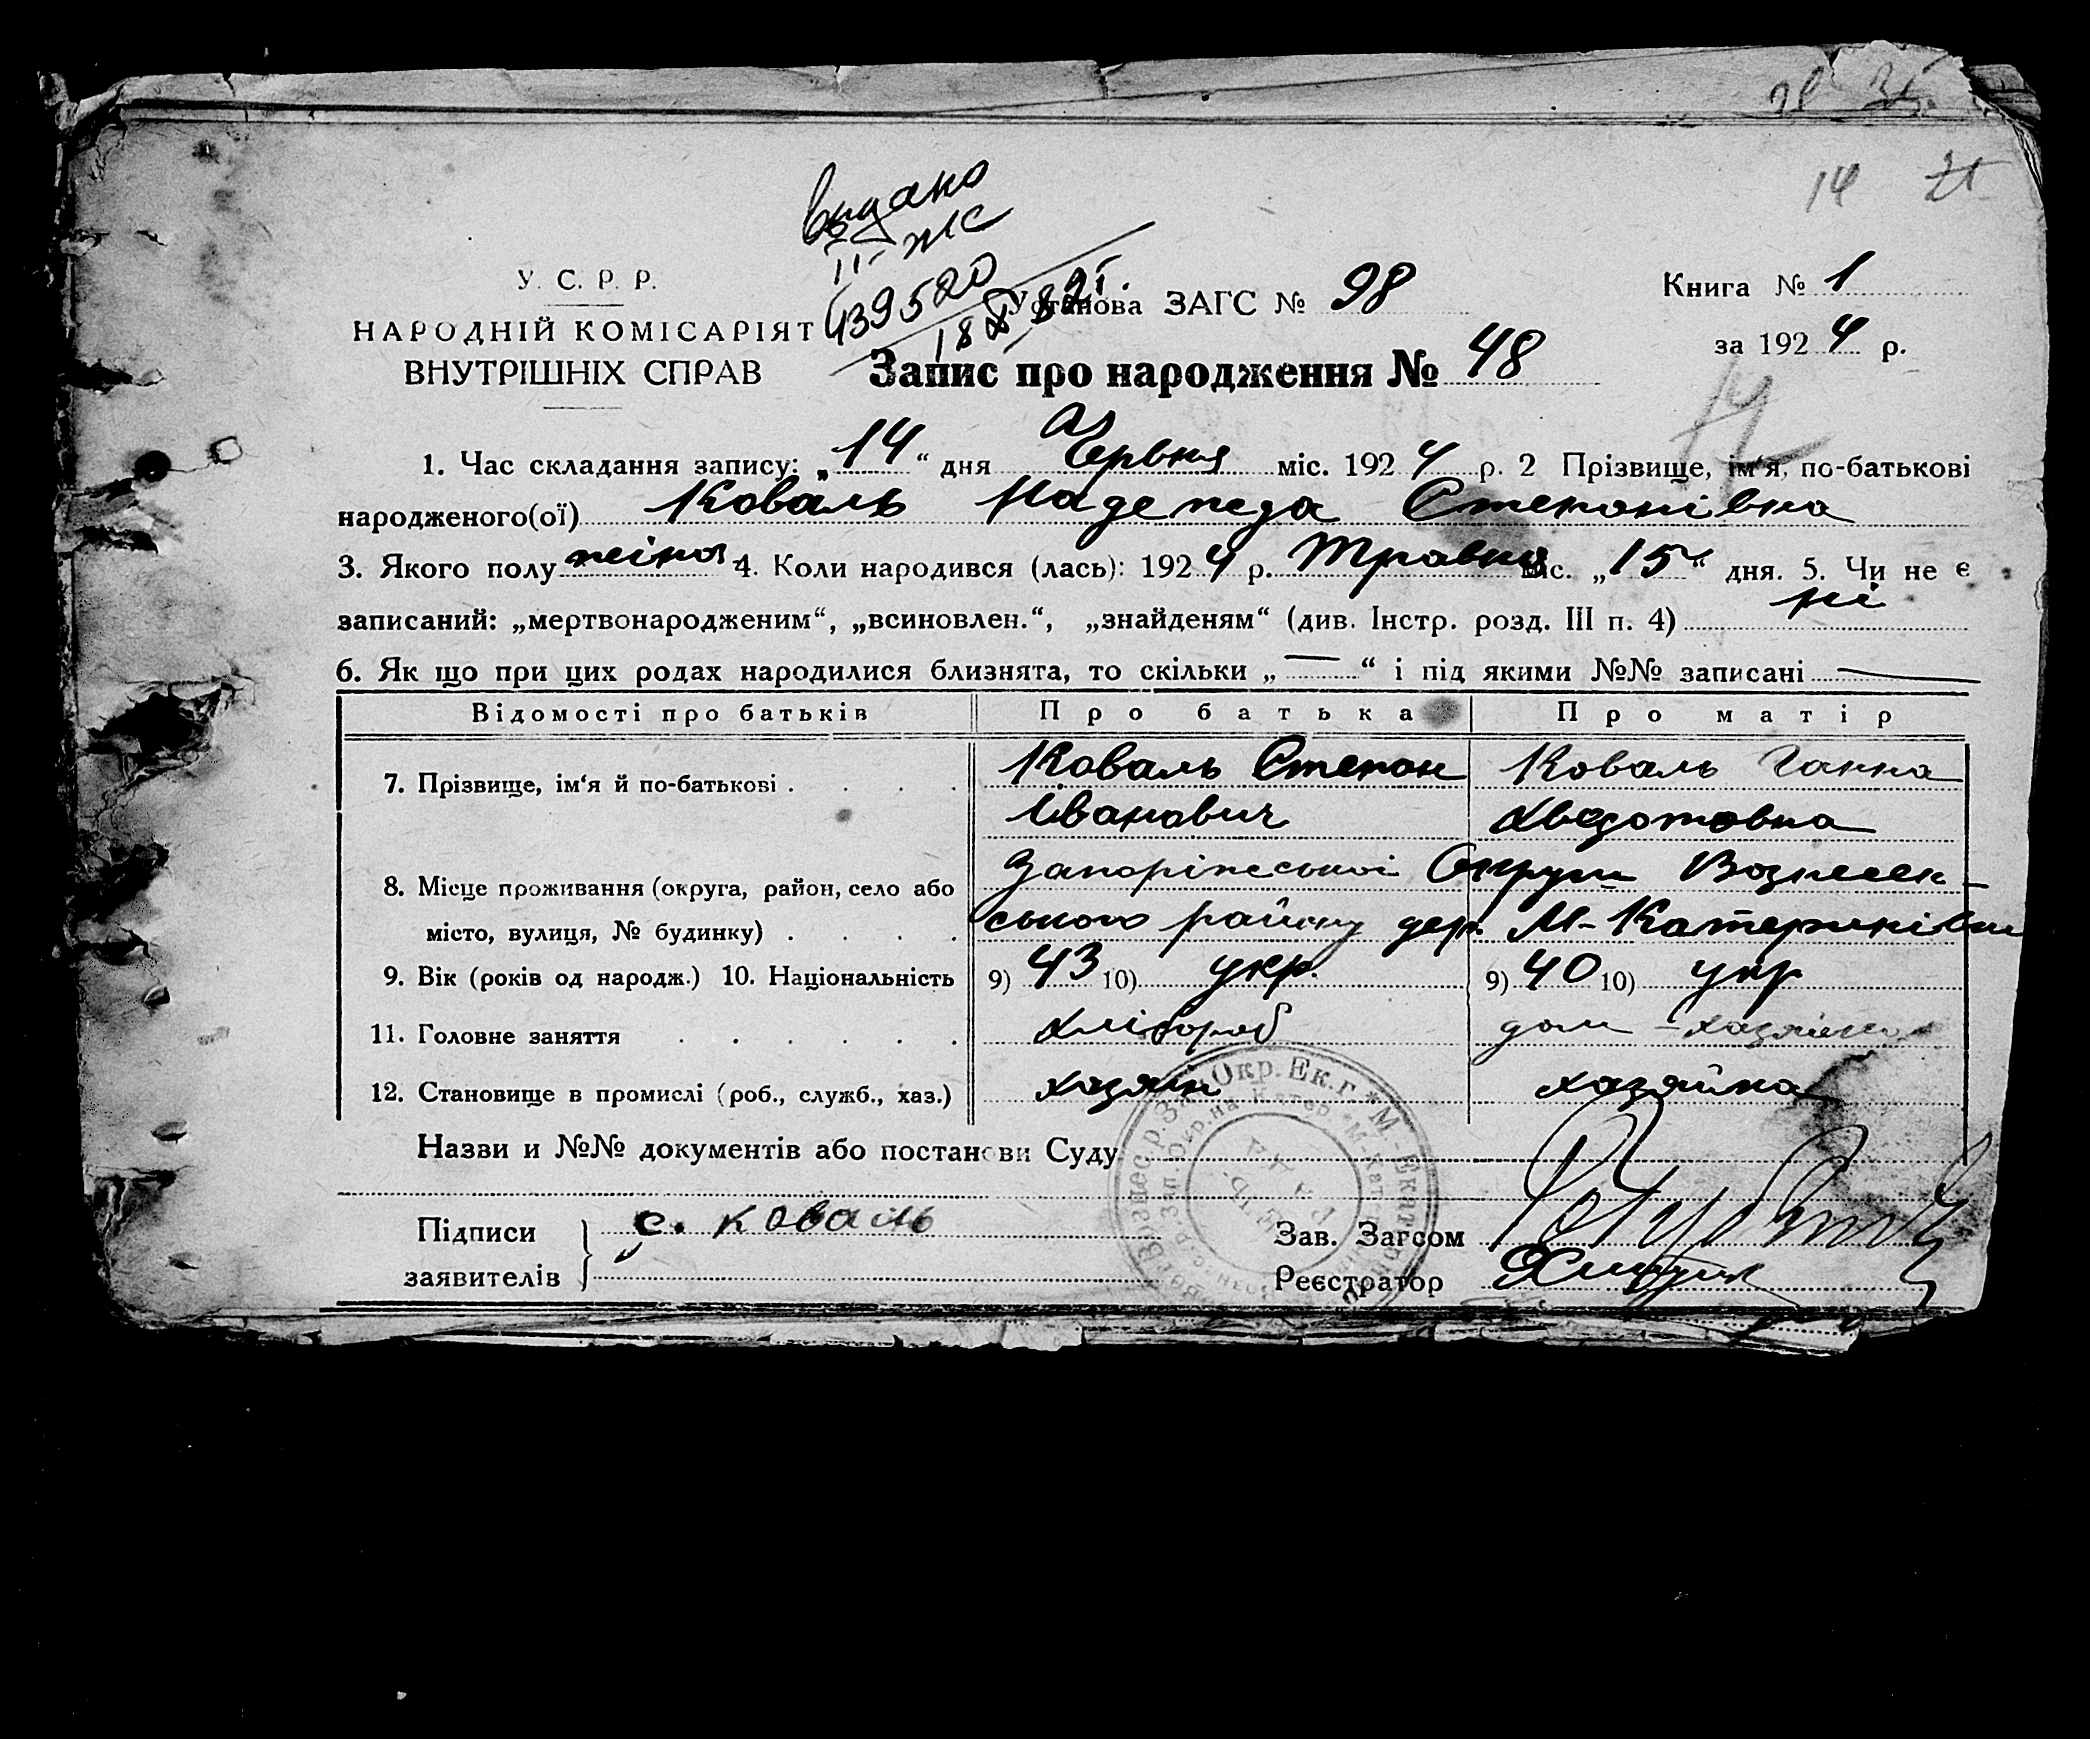 98 35.
14 21
видано
II-ЖС
439520
18 X 82 г.
У. С. Р. Р.
НАРОДНІЙ КОМІСАРІЯТ
ВНУТРІШНІХ СПРАВ
Установа ЗАГС № 98
Книга № 1
за 1924 р.
Запис про народження № 48
14
1. Час складання запису: „14“ дня Червня міс. 1924 р. 2 Прізвище, ім‘я, по-батькові
народженого(ої) Коваль Надежда Степанівна
3. Якого полу жіноч 4. Коли народився (лась): 1924 р. Травня міс. „15“ дня. 5. Чи не є
записаний: „мертвонародженим“, „всиновлен.“, „знайденям“ (див. Інстр. розд. III п. 4) ні
6. Як що при цих родах народилися близнята, то скільки „—“ і під якими №№ записані —
Відомості про батьків Про батька Про матір
7. Прізвище, ім‘я й по-батькові . . . . Коваль Степан Коваль Ганна
Іванович Хведотовна
8. Місце проживання (округа, район, село або Запоріжської Округи Вознесен-
місто, вулиця, № будинку) . . . . ського району дер. М-Катеринівки
9. Вік (років од народж.) 10. Національність 9) 43 10) укр. 9) 40 10) укр
11. Головне заняття . . . . . . хлібороб дом-хазяйка
12. Становище в промислі (роб., служб., хаз.) хазяін хазяйка
Назви и №№ документів або постанови Суду
Підписи
заявителів
С. коваль
Зав. Загсом
Реєстратор